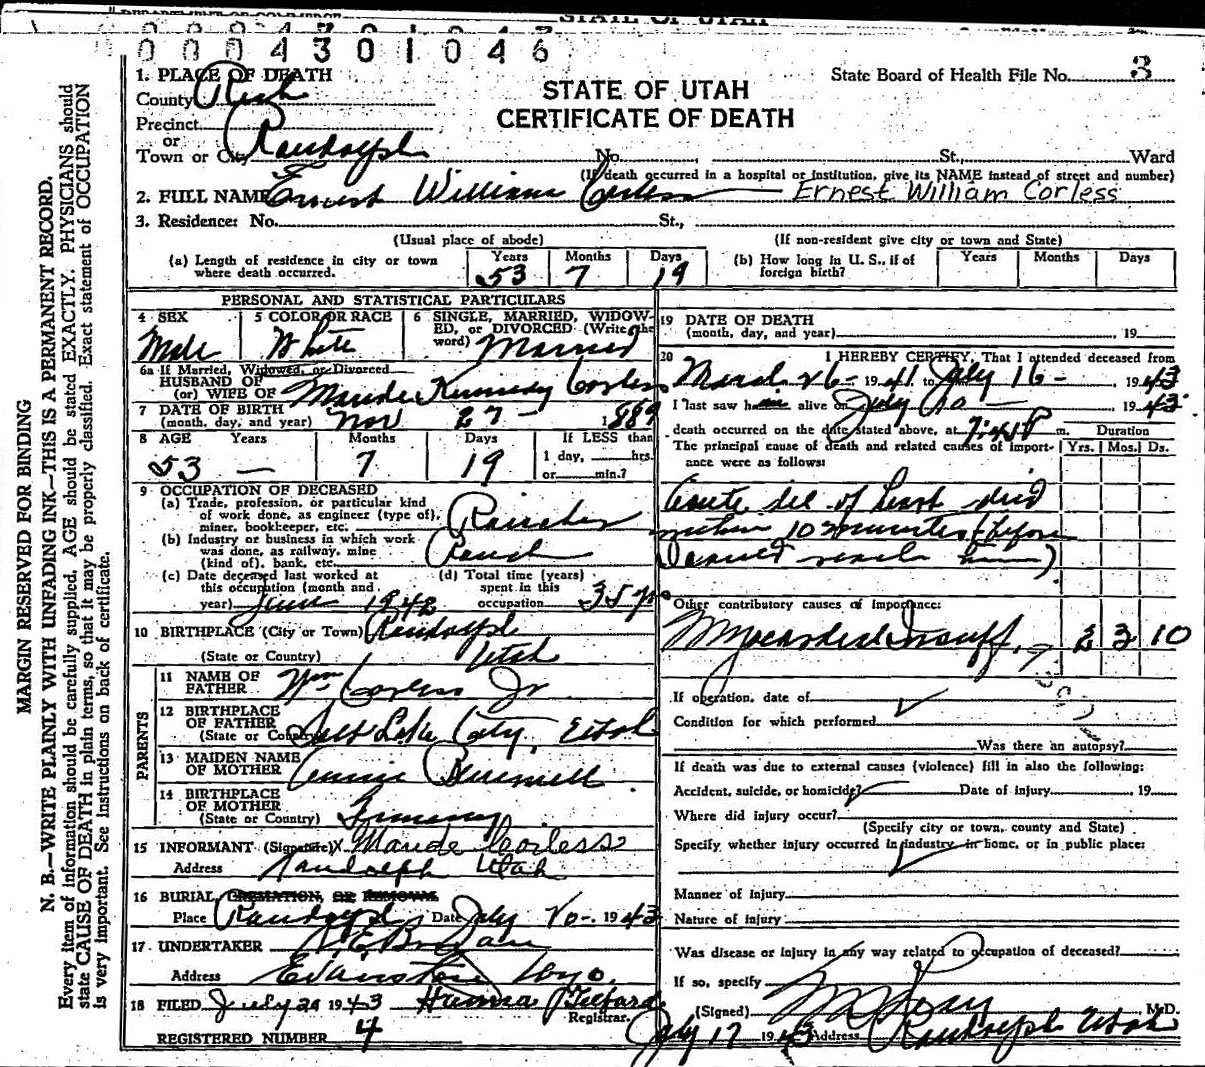 STATE OF UTAH
0004301046
1. PLACE OF DEATH
County Rich
Precinct
or
Town or City Randolph No. St., Ward
(If death occurred in a hospital or institution, give its NAME instead of street and number)
State Board of Health File No. 3
STATE OF UTAH
CERTIFICATE OF DEATH
2. FULL NAME Ernest William Corless Ernest William Corless
3. Residence: No. St.,
(Usual place of abode) (If non-resident give city or town and State)
(a) Length of residence in city or town where death occurred. Years 53 Months 7 Days 19
(b) How long in U. S., if of foreign birth? Years Months Days
PERSONAL AND STATISTICAL PARTICULARS
4 SEX Male
5 COLOR OR RACE White
6 SINGLE, MARRIED, WIDOWED, or DIVORCED (Write the word) Married
6a If Married, Widowed, or Divorced
HUSBAND OF
(or) WIFE OF Maude Kennedy Corless
7 DATE OF BIRTH
(month, day, and year) Nov 27 - 1889
8 AGE Years 53 — Months 7 Days 19 If LESS than 1 day, hrs. or min.?
9 OCCUPATION OF DECEASED
(a) Trade, profession, or particular kind of work done, as engineer (type of), miner, bookkeeper, etc. Rancher
(b) Industry or business in which work was done, as railway, mine (kind of), bank, etc. Ranch
(c) Date deceased last worked at this occupation (month and year) June 1942
(d) Total time (years) spent in this occupation 35 yrs
10 BIRTHPLACE (City or Town) Randolph
(State or Country) Utah
PARENTS
11 NAME OF FATHER Wm Corless Jr
12 BIRTHPLACE OF FATHER
(State or Country) Salt Lake City, Utah
13 MAIDEN NAME OF MOTHER
14 BIRTHPLACE OF MOTHER
(State or Country)
15 INFORMANT (Signature) X Maude Corless
Address Randolph Utah
16 BURIAL, CREMATION, OR REMOVAL
Place Randolph Date July 20- 1943
17 UNDERTAKER
Address Evanston Wyo.
18 FILED July 20 1943 Telford
Registrar.
REGISTERED NUMBER 4
19 DATE OF DEATH
(month, day, and year) 19
20 I HEREBY CERTIFY, That I attended deceased from
March 26- 1941 to July 16- , 1943
I last saw him alive on July 10 — , 1943
death occurred on the date stated above, at 7:45 P m. Duration
The principal cause of death and related causes of importance were as follows: Yrs. Mos. Ds.
Acute dil of heart died
within 10 minutes (before
I could reach him)
Other contributory causes of importance:
Myocardial Insuff. 2 3 10
If operation, date of
Condition for which performed
Was there an autopsy?
If death was due to external causes (violence) fill in also the following:
Accident, suicide, or homicide? Date of injury , 19
Where did injury occur?
(Specify city or town, county and State)
Specify whether injury occurred in industry, in home, or in public place:
Manner of injury
Nature of injury
Was disease or injury in any way related to occupation of deceased?
If so, specify
(Signed) M.D.
July 17 1943 Address Randolph Utah
MARGIN RESERVED FOR BINDING
N. B.—WRITE PLAINLY WITH UNFADING INK—THIS IS A PERMANENT RECORD.
Every item of information should be carefully supplied. AGE should be stated EXACTLY. PHYSICIANS should
state CAUSE OF DEATH in plain terms, so that it may be properly classified. Exact statement of OCCUPATION
is very important. See instructions on back of certificate.